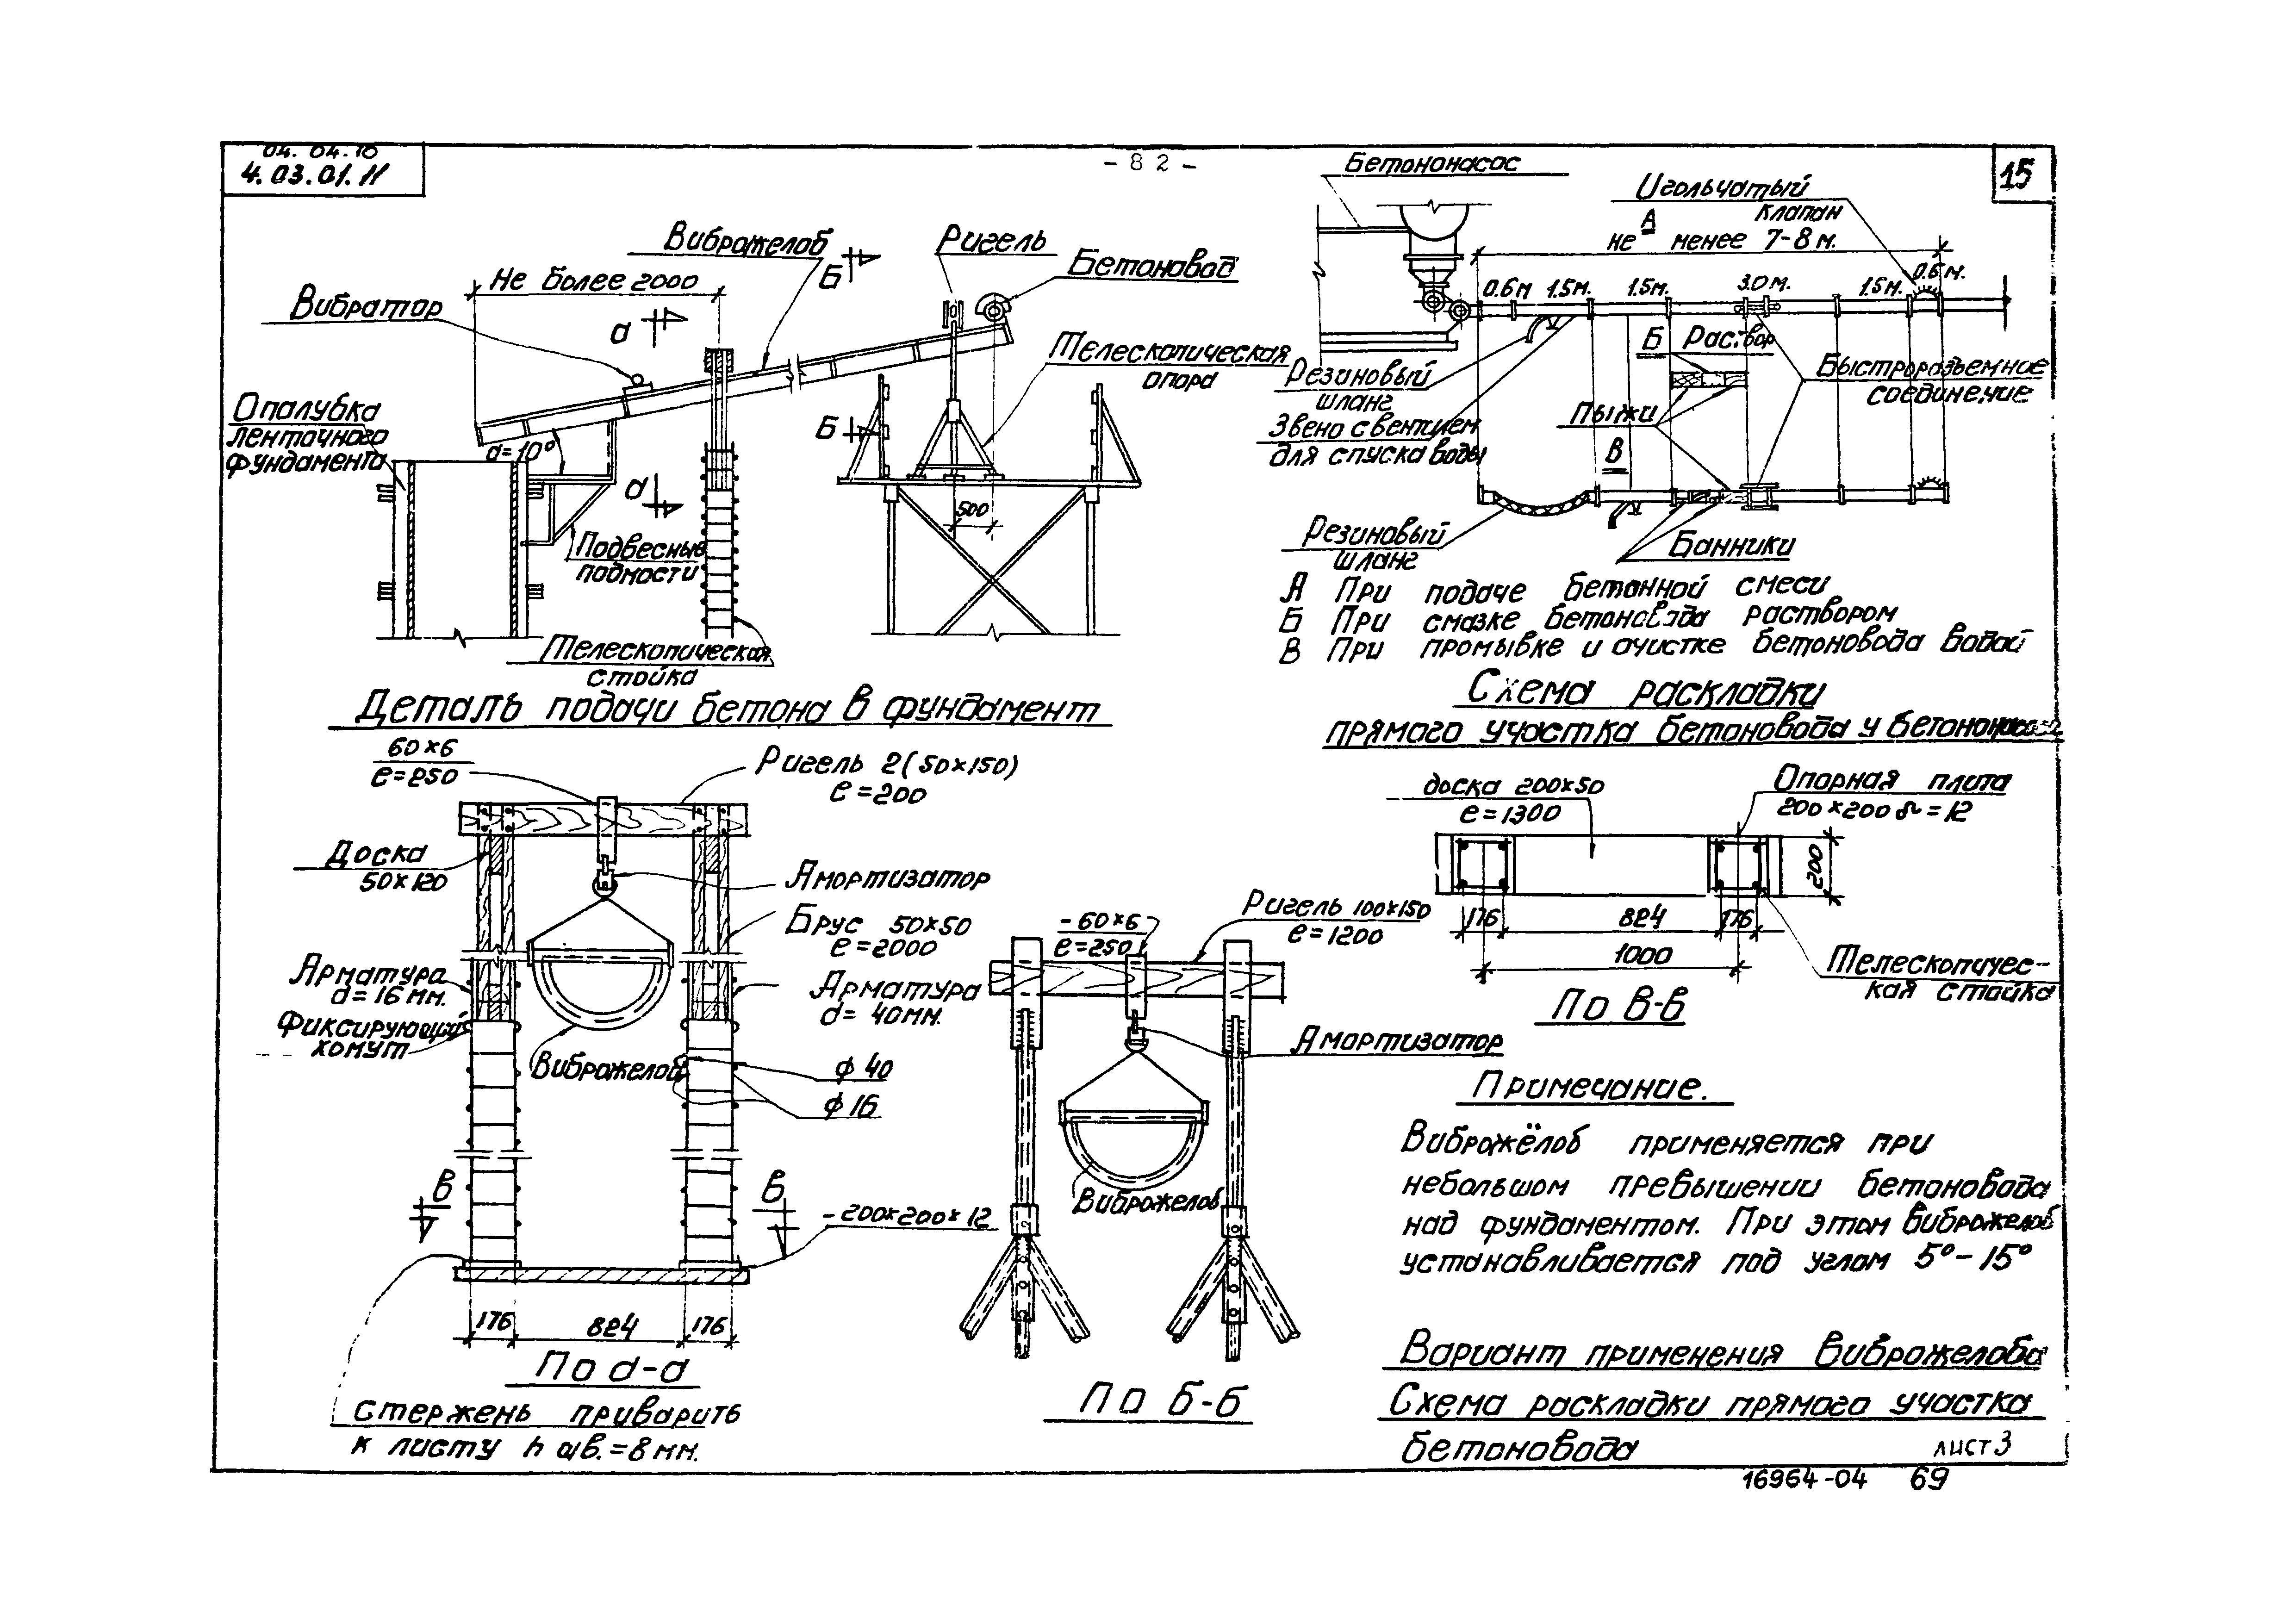 04. 04. 10
4.03.01.11
- 82 -
15
Виброжелоб
Б
Ригель
Бетоновод
Не более 2000
Вибратор
а
Телескопическая
опора
Опалубка
ленточного
фундамента
α=10°
Б
а
500
Подвесные
подмости
Телескопическая
стойка
Деталь подачи бетона в фундамент
Бетононасос
Игольчатый
клапан
А
не менее 7-8 м.
0.6 м
1.5 м.
1.5 м.
3.0 м.
1.5 м.
0.6 м.
Б Раствор
Резиновый
шланг
Быстроразъемное
соединение
Пыжи
Звено с вентилем
для спуска воды
В
Резиновый
шланг
Банники
А При подаче бетонной смеси
Б При смазке бетоновода раствором
В При промывке и очистке бетоновода водой
Схема раскладки
прямого участка бетоновода у бетононасоса
60×6
е=250
Ригель 2(50×150)
е=200
Доска
50×120
Амортизатор
Брус 50×50
е=2000
Арматура
d=16мм.
Арматура
d= 40мм.
Фиксирующий
хомут
Виброжелоб
ф 40
ф 16
В
В
-200×200×12
176
824
176
По а-а
стержень приварить
к листу h шв.=8мм.
-60×6
е=250
Ригель 100×150
е=1200
Амортизатор
Виброжелоб
По Б-Б
доска 200×50
е=1300
Опорная плита
200×200 δ=12
200
176
824
176
1000
Телескопичес-
кая стойка
По В-В
Примечание.
Виброжёлоб применяется при
небольшом превышении бетоновода
над фундаментом. При этом виброжелоб
устанавливается под углом 5°-15°
Вариант применения виброжелоба
Схема раскладки прямого участка
бетоновода
лист 3
16964-04 69